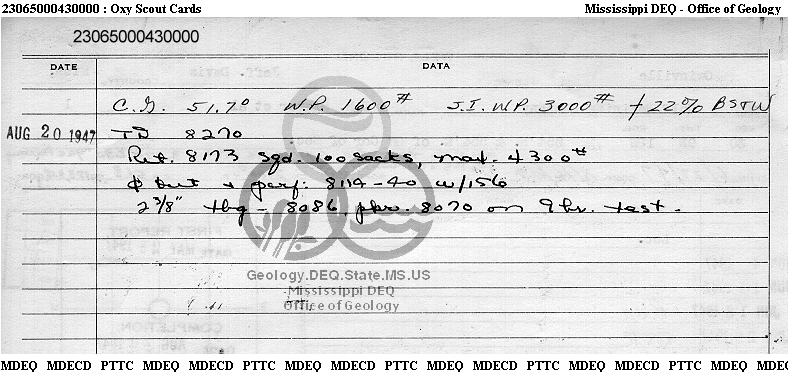 23065000430000 : Oxy Scout Cards Mississippi DEQ - Office of Geology
23065000430000
DATE DATA
C.G. 51.7° W.P. 1600# S.I.W.P. 3000# + 22% BSTW
AUG 20 1947 TD 8270
Ret. 8173 sqd. 100 sacks, max. 4300#
out & perf: 8114-40 w/156
2 3/8" tbg - 8086, pkr. 8070 on 9 hr. test.
Geology.DEQ.State.MS.US
Mississippi DEQ
Office of Geology
MDEQ MDECD PTTC MDEQ MDECD PTTC MDEQ MDECD PTTC MDEQ MDECD PTTC MDEQ MDECD PTTC MDEQ MDECD